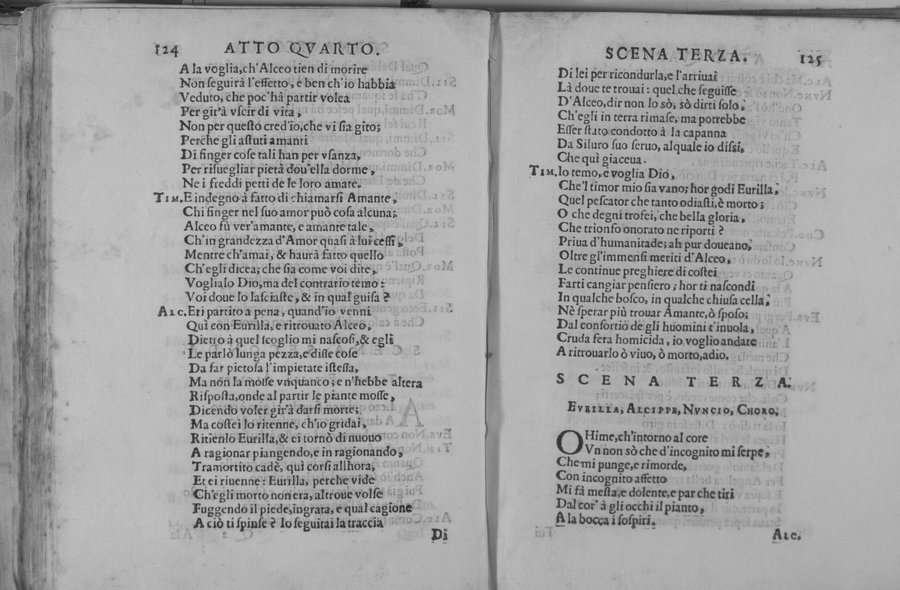 124 ATTO QVARTO.
A la voglia, ch'Alceo tien di morire
Non seguirà l'effetto, e ben ch'io habbia
Veduto, che poc'hà partir volea
Per gir'à vscir di vita,
Non per questo cred'io, che vi sia gito;
Perche gli astuti amanti
Di finger cose tali han per vsanza,
Per risuegliar pietà dou'ella dorme,
Ne i freddi petti de le loro amate.
TIM. E indegno à fatto di chiamarsi Amante,
Chi finger nel suo amor può cosa alcuna;
Alceo fù ver'amante, e amante tale,
Ch'in grandezza d'Amor quasi à lui cessi,
Mentre ch'amai, & haurà fatto quello
Ch'egli dicea; che sia come voi dite,
Voglialo Dio, ma del contrario temo:
Voi doue lo lasciaste, & in qual guisa?
ALC. Eri partito a pena, quand'io venni
Quì con Eurilla, e ritrouato Alceo,
Dietro à quel scoglio mi nascosi, & egli
Le parlò lunga pezza, e disse cose
Da far pietosa l'impietate istessa,
Ma non la mosse vnquanco; e n'hebbe altera
Risposta, onde al partir le piante mosse,
Dicendo voler gir'à darsi morte;
Ma costei lo ritenne, ch'io gridai,
Ritienlo Eurilla, & ei tornò di nuouo
A ragionar piangendo, e in ragionando,
Tramortito cadè, quì corsi allhora,
Et ei riuenne: Eurilla, perche vide
Ch'egli morto non era, altroue volse
Fuggendo il piede, ingrata, e qual cagione
A ciò ti spinse? Io seguitai la traccia
Di
SCENA TERZA. 125
Di lei per ricondurla, e l'arriuai
Là doue te trouai: quel che seguisse
D'Alceo, dir non lo sò, sò dirti solo,
Ch'egli in terra rimase, ma potrebbe
Esser stato condotto à la capanna
Da Siluro suo seruo, al quale io dissi,
Che quì giaceua.
TIM. Io temo, e voglia Dio,
Che'l timor mio sia vano; hor godi Eurilla,
Quel pescator che tanto odiasti, è morto;
O che degni trofei, che bella gloria,
Che trionfo onorato ne riporti?
Priua d'humanitade; ah pur doueano,
Oltre gl'immensi meriti d'Alceo,
Le continue preghiere di costei
Farti cangiar pensiero; hor ti nascondi
In qualche bosco, in qualche chiusa cella,
Nè sperar più trouar Amante, ò sposo;
Dal consortio de gli huomini t'inuola,
Cruda fera homicida, io voglio andare
A ritrouarlo ò viuo, ò morto, adio.
SCENA TERZA.
EVRILLA, ALCIPPE, NVNCIO, CHORO.
OHime, ch'intorno al core
Vn non sò che d'incognito mi serpe,
Che mi punge, e rimorde,
Con incognito affetto
Mi fà mesta, e dolente, e par che tiri
Dal cor' à gli occhi il pianto,
A la bocca i sospiri.
ALC.